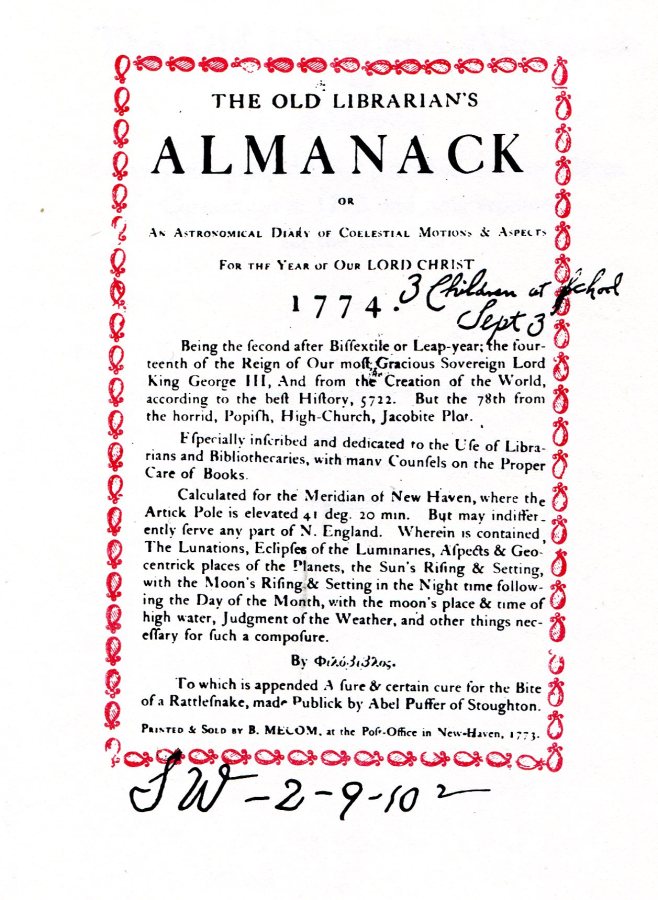 THE OLD LIBRARIAN'S
ALMANACK
OR
AN ASTRONOMICAL DIARY OF COELESTIAL MOTIONS & ASPECTS
FOR THE YEAR OF OUR LORD CHRIST
1774.
3 Children at School
Sept 3
Being the ſecond after Biſſextile or Leap-year; the four-
teenth of the Reign of Our moſt Gracious Sovereign Lord
King George III, And from the Creation of the World,
according to the beſt Hiſtory, 5722. But the 78th from
the horrid, Popiſh, High-Church, Jacobite Plot.
Eſpecially inſcribed and dedicated to the Uſe of Libra-
rians and Bibliothecaries, with many Counſels on the Proper
Care of Books.
Calculated for the Meridian of New Haven, where the
Artick Pole is elevated 41 deg. 20 min. But may indiffer-
ently ſerve any part of N. England. Wherein is contained,
The Lunations, Eclipſes of the Luminaries, Aſpects & Geo-
centrick places of the Planets, the Sun's Riſing & Setting,
with the Moon's Riſing & Setting in the Night time follow-
ing the Day of the Month, with the moon's place & time of
high water, Judgment of the Weather, and other things nec-
eſſary for ſuch a compoſure.
By Φιλόβιβλος.
To which is appended A ſure & certain cure for the Bite
of a Rattleſnake, made Publick by Abel Puffer of Stoughton.
PRINTED & SOLD BY B. MECOM, at the Poſt-Office in New-Haven, 1773.
SW-2-9-10